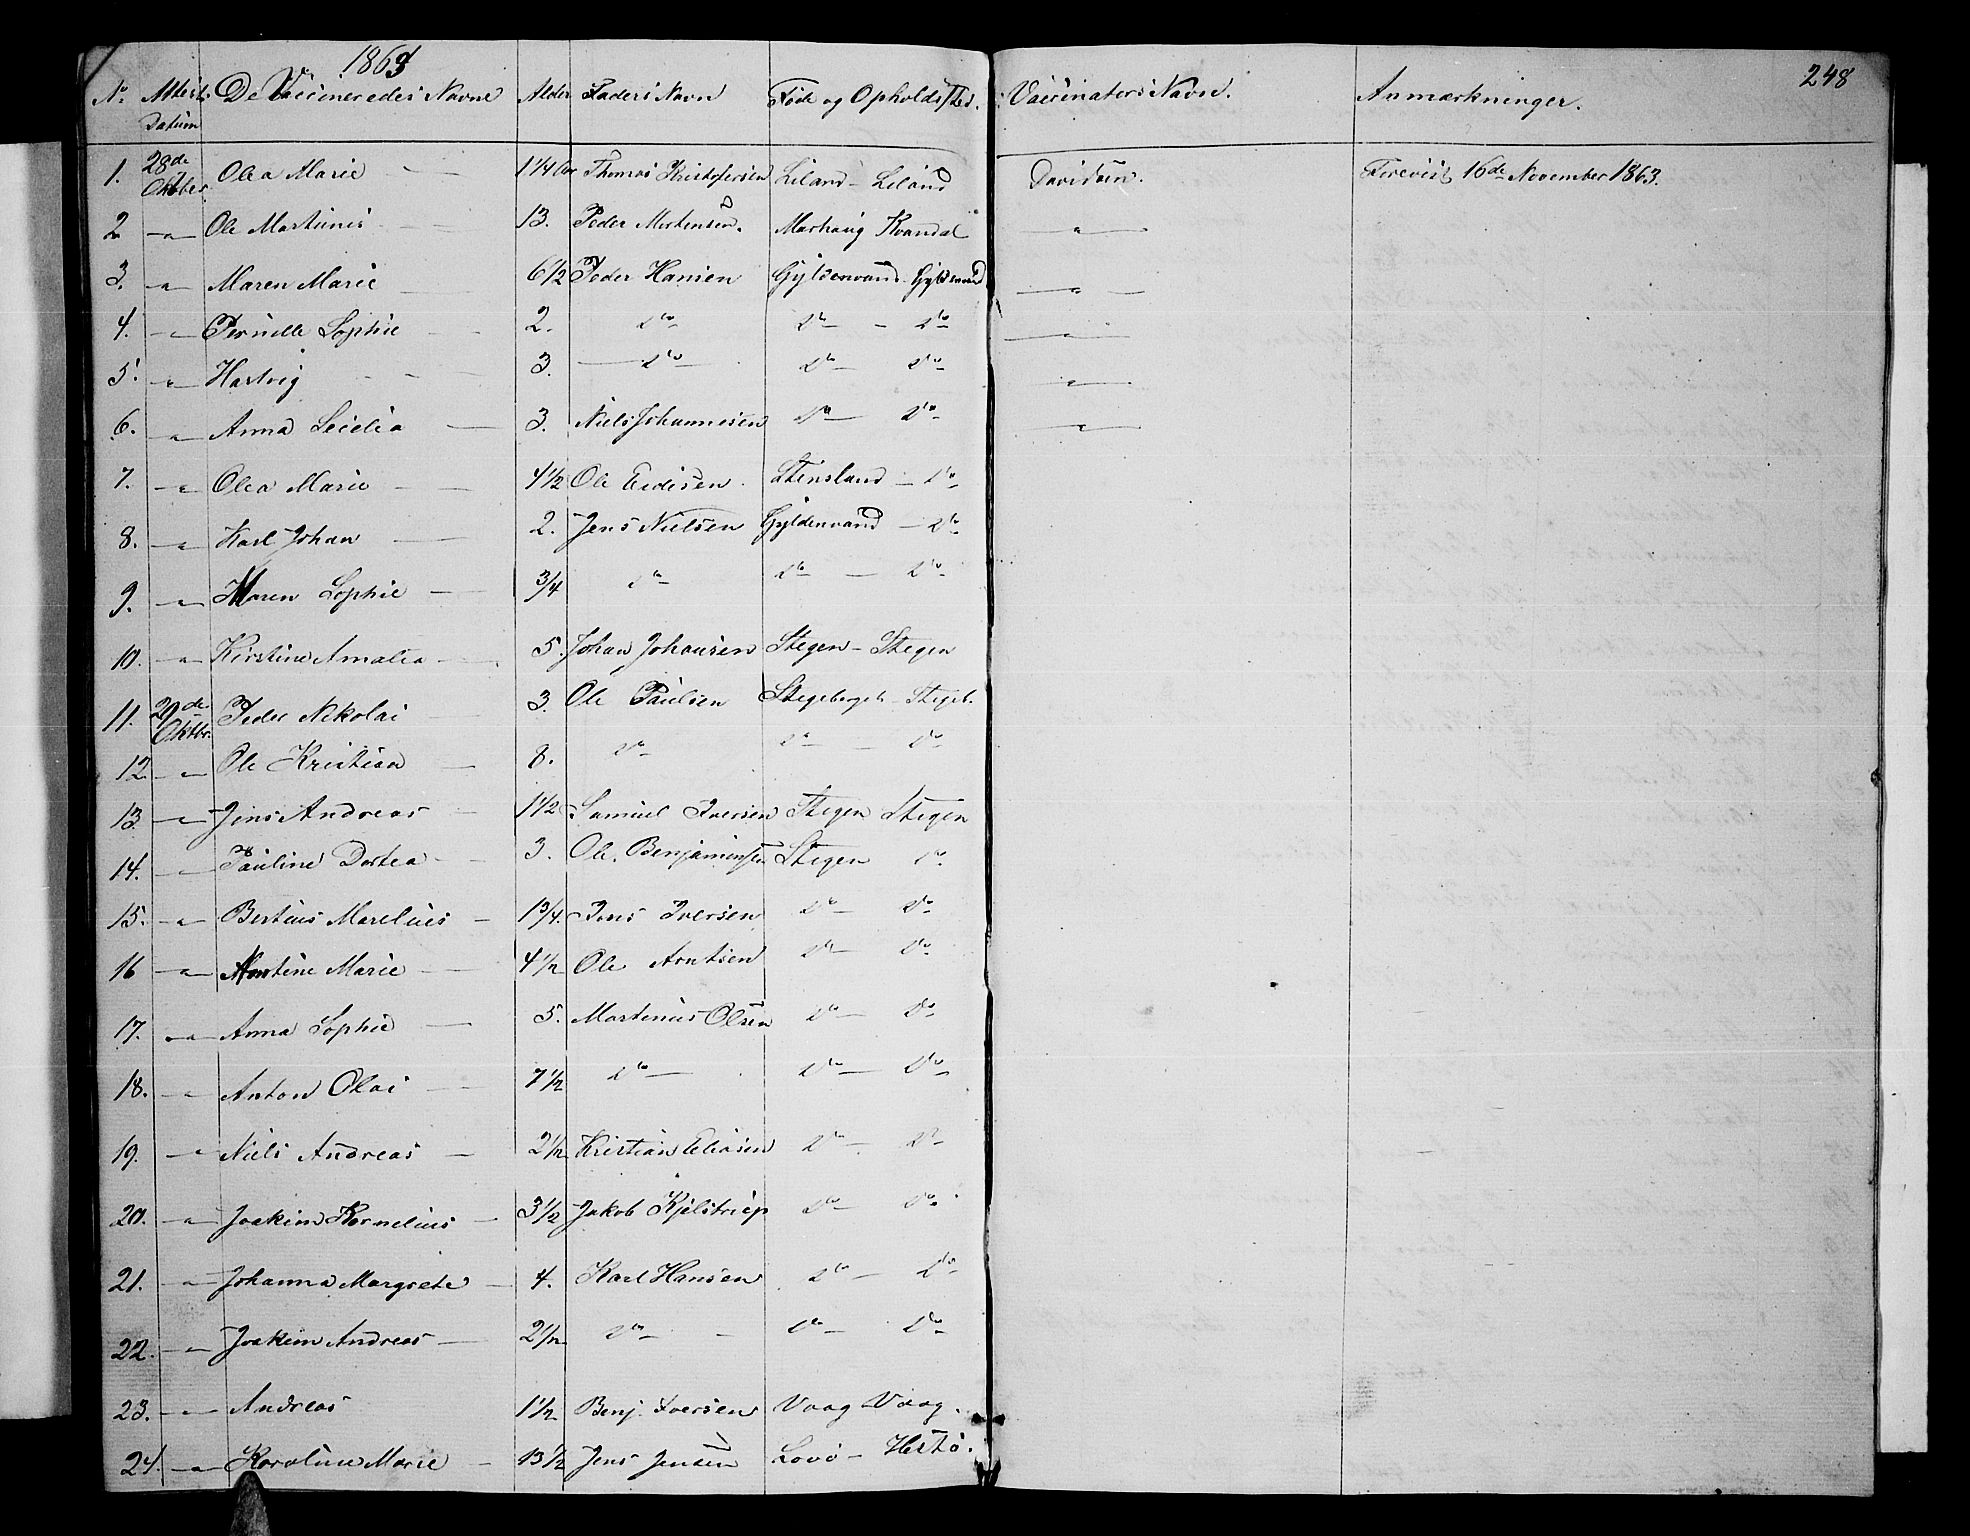 1863
248
No Attest. Datum De Vaccineredes Navne Alder Faders Navn Føde og Opholdssted. Vaccinators Navn. Anmærkninger.
1. 28de Oktober Olea Marie 1 1/4 Aar Thomas Kristofersen Leland - Leland Davidsen. Forevist 16de November 1863.
2 -"- Ole Martinus 13. Peder Mortensen. Marhaug Kvandal -"-
3. -"- Maren Marie 6 1/2 Peder Hansen Gyldenvand Gyldenvand -"-
4. -"- Pernille Sophie 2. do do - do -"-
5. -"- Hartvig 3. do do do -"-
6. -"- Anna Seselia 3. Niels Johannesen do do -"-
7. -"- Olea Marie 4 1/2 Ole Stensland - do
8. -"- Karl Johan 2. Jens Nielsen Gyldenvand - do
9. -"- Maren Sophie 3/4 do do - do
10. -"- Kirstine Amalia 5. Johan Johansen Stegen - Stegen
11. 29de Oktbr. Peder Nikolai 3. Ole Paulsen Stegeberget - Stegeb.
12 -"- Ole Kristian 8. do do - do
13. -"- Jens Andreas 1 1/2 Samuel Iversen Stegen Stegen
14. -"- Pauline Dortea 3. Ole Benjaminsen Stegen do
15. -"- Bertius Marelius 1 3/4. Jens Iversen do do
16 -"- Martine Marie 4 1/2 Ole Arntsen do do
17. -"- Anna Sophie 5. Martinus Olsen do do
18. -"- Anton Olai 7 1/2 do do do
19. -"- Niels Andreas 2 1/2 Kristian Eliasen do do
20. -"- Joakim Kornelius 3 1/2 Jakob Kjelstrup do do
21. -"- Johanna Margrete 4. Karl Hansen do - do
22. -"- Joakim Andreas 2 1/2 do do do
23. -"- Andreas 1 1/2 Benj. Iversen Vaag Vaag.
24. -"- Karoline Marie 13 1/2 Jens Jensen Lovø - Hestø.